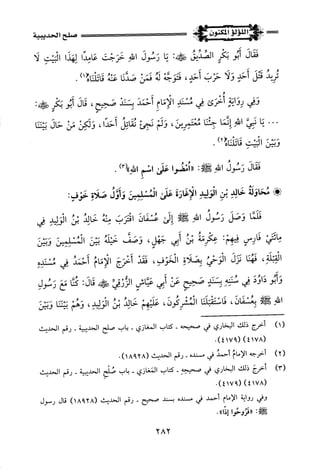 اللؤلؤ المكنون
صلح الحديبية
فَقَالَ أَبُو بَكْرٍ الصِّدِّيقُ ﷺ: يَا رَسُولَ اللهِ خَرَجْتَ عَامِدًا لِهَذَا الْبَيْتِ لَا
تُرِيدُ قَتْلَ أَحَدٍ وَلَا حَرْبَ أَحَدٍ، فَتَوَجَّهْ لَهُ فَمَنْ صَدَّنَا عَنْهُ قَاتَلْنَاهُ(١).
وَفِي رِوَايَةٍ أُخْرَى فِي مُسْنَدِ الْإِمَامِ أَحْمَدَ بِسَنَدٍ صَحِيحٍ، قَالَ أَبُو بَكْرٍ
... يَا نَبِيَّ اللهِ إِنَّمَا جِئْنَا مُعْتَمِرِينَ، وَلَمْ نَجِئْ نُقَاتِلُ أَحَدًا، وَلَكِنْ مَنْ حَالَ بَيْنَنَا
وَبَيْنَ الْبَيْتِ قَاتَلْنَاهُ(٢).
فَقَالَ رَسُولُ اللهِ ﷺ: «امْضُوا عَلَى اسْمِ اللهِ»(٣).
مُحَاوَلَةُ خَالِدِ بْنِ الْوَلِيدِ الْإِغَارَةَ عَلَى الْمُسْلِمِينَ وَأَوَّلُ صَلَاةِ خَوْفٍ:
فَلَمَّا وَصَلَ رَسُولُ اللهِ ﷺ إِلَى عُسْفَانَ اقْتَرَبَ مِنْهُ خَالِدُ بْنُ الْوَلِيدِ فِي
مِائَتَيْ فَارِسٍ فِيهِمْ: عِكْرِمَةُ بْنُ أَبِي جَهْلٍ، وَصَفَّ خَيْلَهُ بَيْنَ الْمُسْلِمِينَ وَبَيْنَ
الْقِبْلَةِ، فَهُنَا نَزَلَ الْوَحْيُ بِصَلَاةِ الْخَوْفِ، فَقَدْ أَخْرَجَ الْإِمَامُ أَحْمَدُ فِي مُسْنَدِهِ
وَأَبُو دَاوُدَ فِي سُنَنِهِ بِسَنَدٍ صَحِيحٍ عَنْ أَبِي عَيَّاشٍ الزُّرَقِيِّ قَالَ: كُنَّا مَعَ رَسُولِ
اللهِ ﷺ بِعُسْفَانَ، فَاسْتَقْبَلَنَا الْمُشْرِكُونَ، عَلَيْهِمْ خَالِدُ بْنُ الْوَلِيدِ، وَهُمْ بَيْنَنَا وَبَيْنَ
(١) أخرج ذلك البخاري في صحيحه ـ كتاب المغازي ـ باب صلح الحديبية ـ رقم الحديث
(٤١٧٨) (٤١٧٩).
(٢) أخرجه الإمام أحمد في مسنده ـ رقم الحديث (١٨٩٢٨).
(٣) أخرج ذلك البخاري في صحيحه ـ كتاب المغازي ـ باب صُلْح الحديبية ـ رقم الحديث
(٤١٧٨) (٤١٧٩).
وفي رواية الإمام أحمد في مسنده بسند صحيح ـ رقم الحديث (١٨٩٢٨) قال رسول
ﷺ: «فَرُوحُوا إِذًا».
٢٨٢